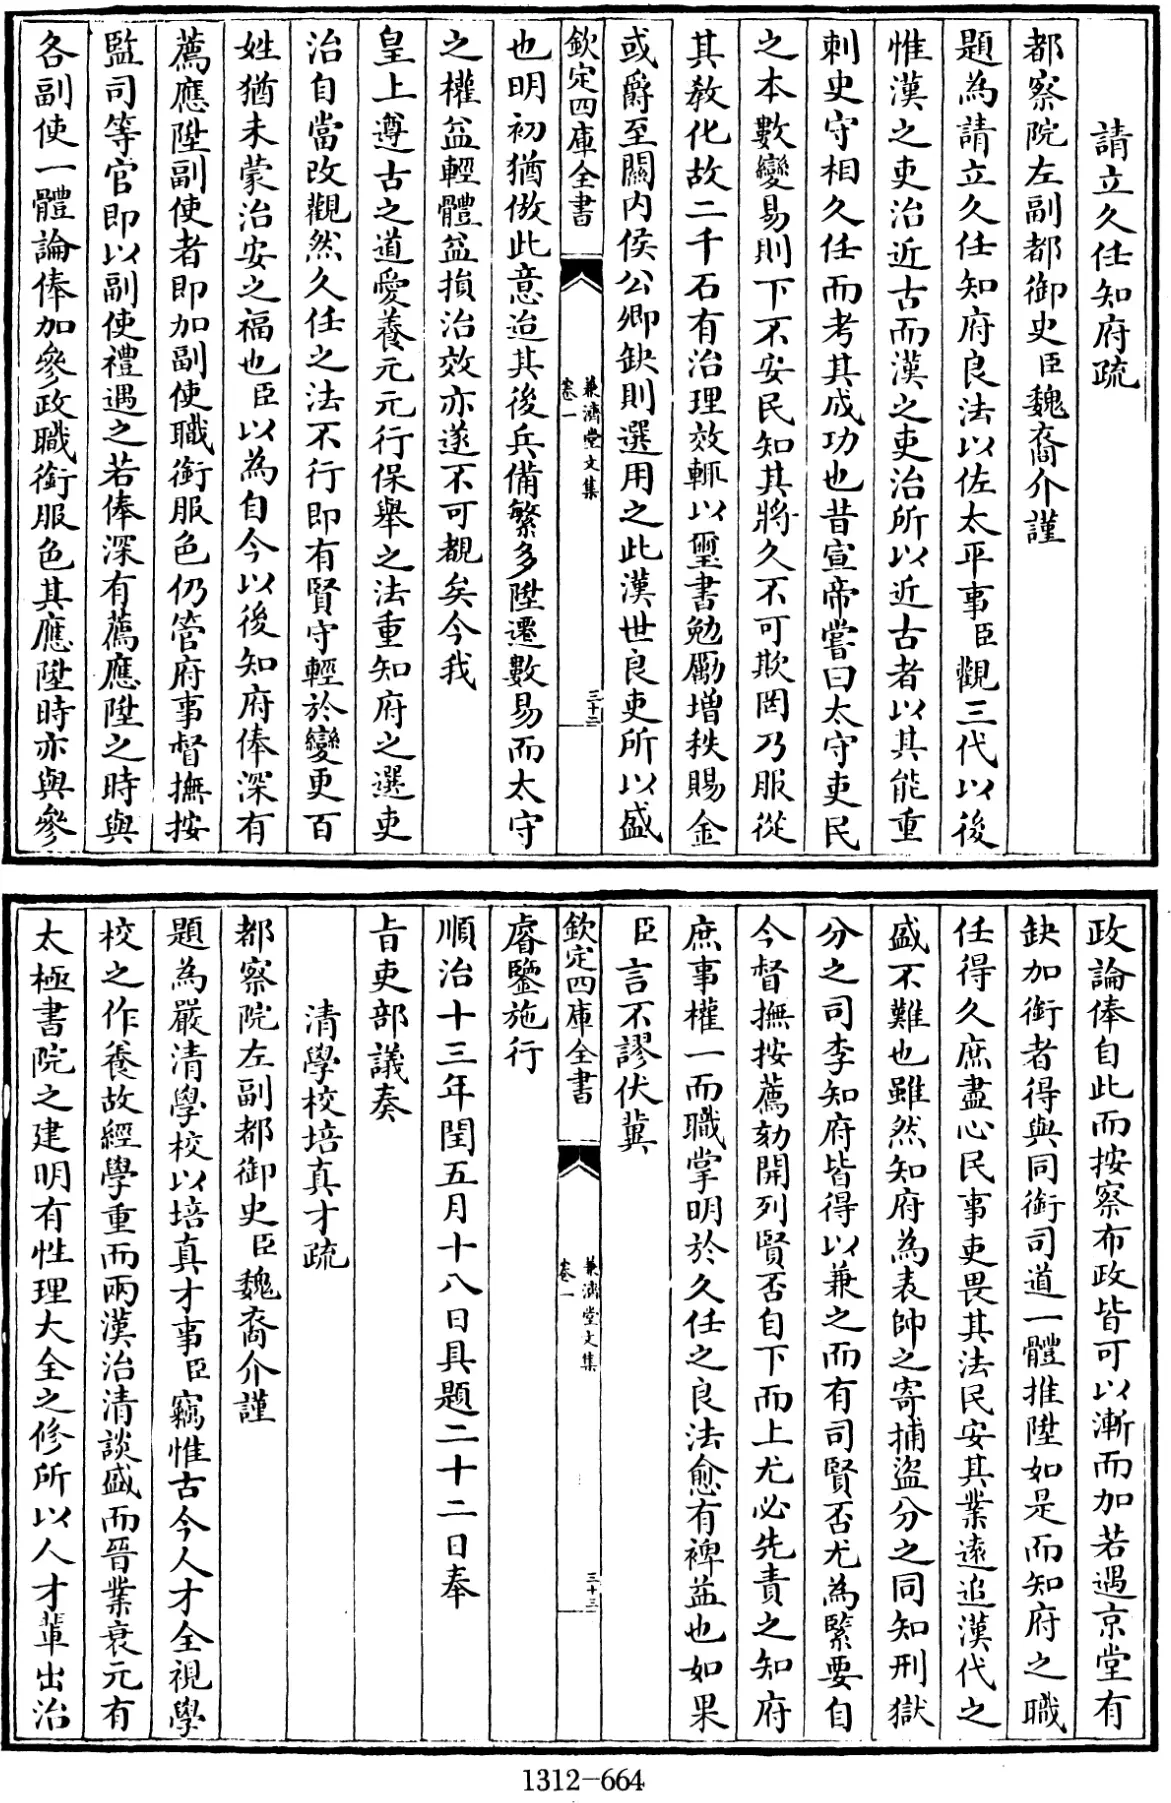 請立久任知府疏
都察院左副都御史臣魏裔介謹
題為請立久任知府良法以佐太平事臣觀三代以後
惟漢之吏治近古而漢之吏治所以近古者以其能重
刺史守相久任而考其成功也昔宣帝嘗曰太守吏民
之本數變易則下不安民知其將久不可欺罔乃服從
其教化故二千石有治理效輒以璽書勉勵增秩賜金
或爵至關內侯公卿缺則選用之此漢世良吏所以盛
欽定四庫全書
兼濟堂文集
卷一
三十二
也明初猶倣此意迨其後兵備繁多陞遷數易而太守
之權益輕體益損治效亦遂不可覩矣今我
皇上遵古之道愛養元元行保舉之法重知府之選吏
治自當改觀然久任之法不行即有賢守輕於變更百
姓猶未蒙治安之福也臣以為自今以後知府俸深有
薦應陞副使者即加副使職銜服色仍管府事督撫按
監司等官即以副使禮遇之若俸深有薦應陞之時與
各副使一體論俸加參政職銜服色其應陞時亦與參
政論俸自此而按察布政皆可以漸而加若遇京堂有
缺加銜者得與同銜司道一體推陞如是而知府之職
任得久庶盡心民事吏畏其法民安其業遠追漢代之
盛不難也雖然知府為表帥之寄捕盜分之同知刑獄
分之司李知府皆得以兼之而有司賢否尤為緊要自
今督撫按薦劾開列賢否自下而上尤必先責之知府
庶事權一而職掌明於久任之良法愈有裨益也如果
臣言不謬伏冀
欽定四庫全書
兼濟堂文集
卷一
三十三
睿鑒施行
順治十三年閏五月十八日具題二十二日奉
旨吏部議奏
清學校培真才疏
都察院左副都御史臣魏裔介謹
題為嚴清學校以培真才事臣竊惟古今人才全視學
校之作養故經學重而兩漢治清談盛而晉業衰元有
太極書院之建明有性理大全之修所以人才輩出治
1312-664